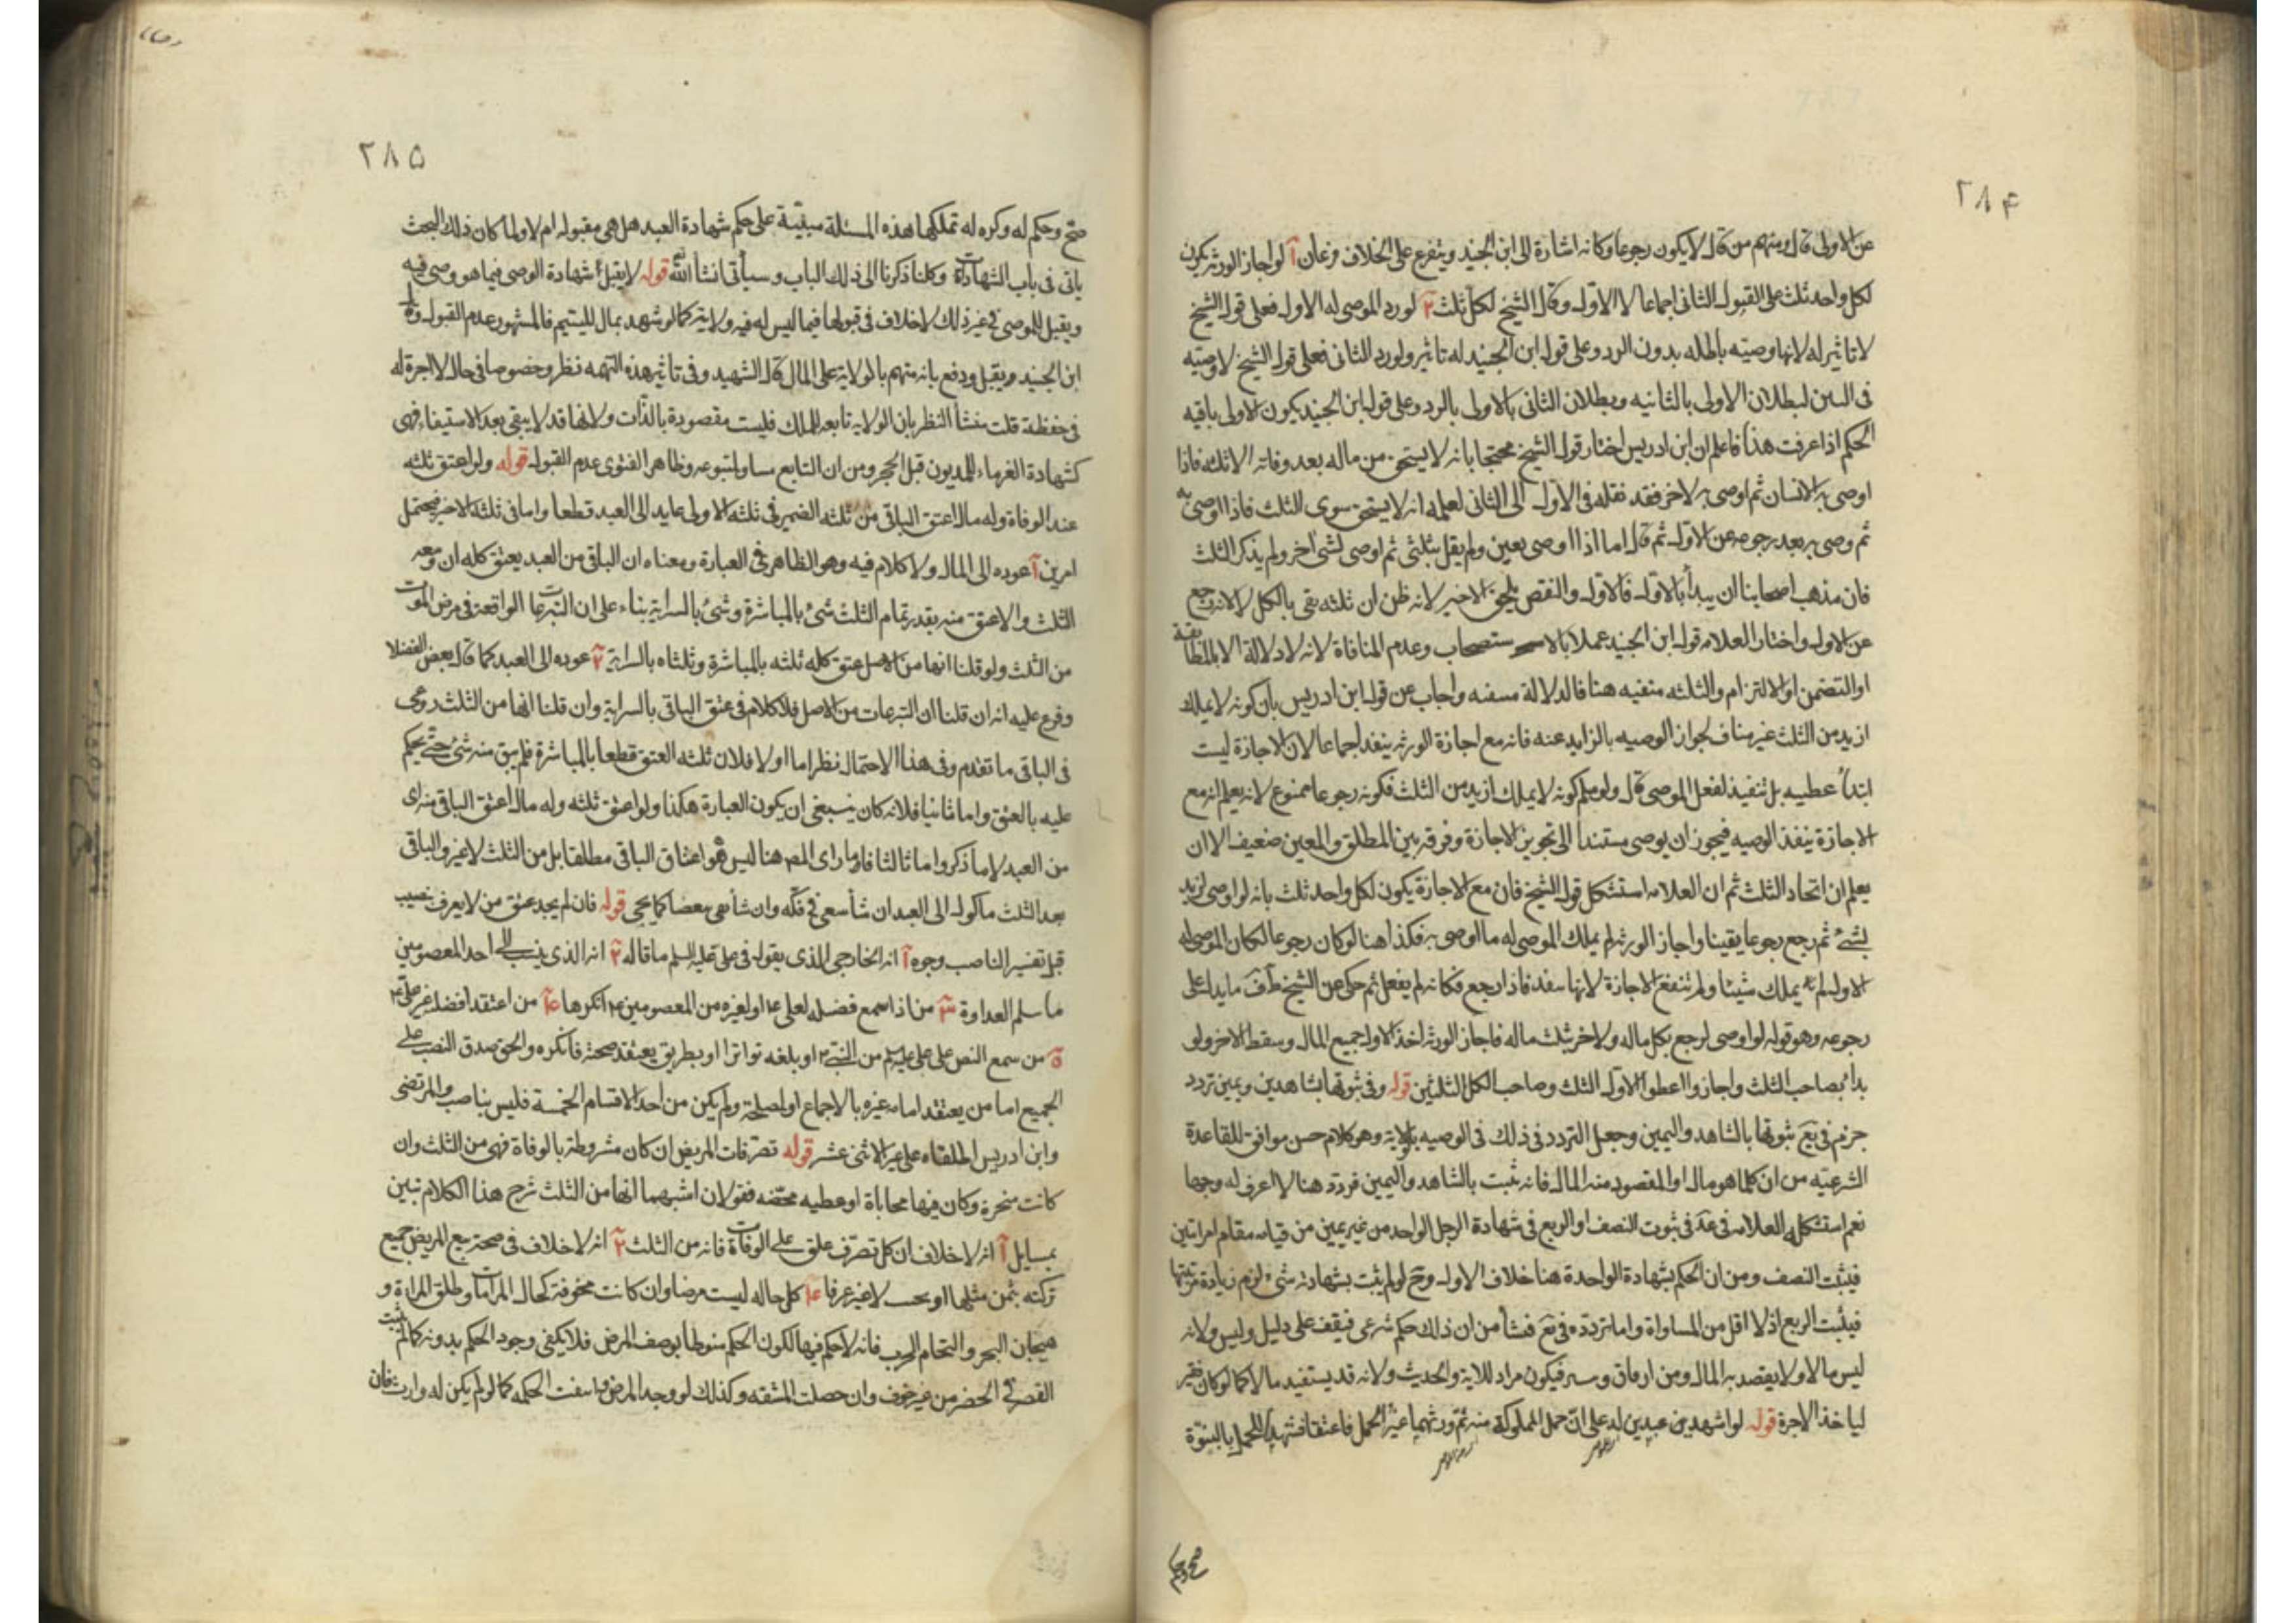 ٢٨۴
عن الاولى قال ومنهم من قال لا يكون رجوعا وكانه اشارة الى ابن الجنيد ويتفرع على الخلاف فرعان آ لو اجاز الورثه يكون
لكل واحد ثلث على القبول الثانى اجماعا لا الاول وقال الشيخ لكل ثلث ٢ لو رد الموصى له الاول فعلى قول الشيخ
لا تاثير له لانها وصيته باطله بدون الرد وعلى قول ابن الجنيد له تاثير ولو رد الثانى فعلى قول الشيخ لا وصيته
فى البين لبطلان الاولى بالثانيه وبطلان الثانى بالاولى بالرد وعلى قول ابن الجنيد يكون الاولى باقيه
الحكم اذا عرفت هذا فاعلم ان ابن ادريس اختار قول الشيخ محتجا بانه لا يستحق من ماله بعد وفاته الا ثلثه فاذا
اوصى به لانسان ثم اوصى به لاخر فقد نقله فى الاول الى الثانى لعلمه انه لا يستحق سوى الثلث فاذا اوصى به
ثم وصى به بعد رجوعه عن الاول ثم قال اما اذا اوصى بعين ولم يقل بثلثى ثم اوصى لشى اخر ولم يذكر الثلث
فان مذهب اصحابنا ان يبدأ بالاول فالاول والنقص يلحق الاخير لانه ظن ان ثلثه يفى بالكل لا لانه رجع
عن الاول واختار العلامه قول ابن الجنيد عملا بالا ستصحاب وعدم المنافاة لانه لا دلالة الا بالمطابقة
او التضمن او الالتزام والثلثه منفيه هنا فالدلالة منفيه واجاب عن قول ابن ادريس بان كونه لا يملك
ازيد من الثلث غير مناف لجواز الوصيه بالزايد عنه فانه مع اجازة الورثه ينفد اجماعا لان الاجازة ليست
ابتدأ عطيه بل تنفيذ لفعل الموصى قال ولو سلم كونه لا يملك ازيد من الثلث فكونه رجوعا ممنوع لانه يعلم انه مع
الاجازة ينفذ الوصيه فيجوز ان يوصى مستندا الى تجويز الاجازة وفرقه بين المطلق والمعين ضعيف الا ان
يعلم ان اتحاد الثلث ثم ان العلامه استشكل قول الشيخ فان مع الاجازة يكون لكل واحد ثلث بانه لو اوصى لزيد
بشئ ثم رجع رجوعا يقينا واجاز الورثه لم يملك الموصى له ما اوصى به فكذا هنا لو كان رجوعا لكان الموصى له
الاول لم يملك شيئا ولم تنفع الاجازة لانها فاذا رجع فكانه لم يفعل ثم حكى عن الشيخ ما يدل على
رجوعه وهو قوله لو اوصى لرجع بكل ماله ولاخر بثلث ماله فاجاز الورثه اخذ الاول جميع المال وسقط الاخر ولو
بدأ بصاحب الثلث واجازوا اعطوا الاول الثلث وصاحب الكل الثلثين قوله وفى ثبوتها بشاهدين ويمين تردد
جزم فى بثبوتها بالشاهد واليمين وجعل التردد فى ذلك فى الوصيه بالولاية وهو كلام حسن موافق للقاعدة
الشرعيه من ان كلما هو مال او المقصود منه المال فانه يثبت بالشاهد واليمين فردد هنا لا اعرف له وجها
نعم استشكله العلامه فى عد فى ثبوت النصف او الربع فى شهادة الرجل الواحد من غير يمين من قيامه مقام امراتين
فيثبت النصف ومن ان الحكم بشهادة الواحدة هنا خلاف الاول وح لو لم يثبت بشهادته شى لزم زيادة مرتبتها
فيثبت الربع اذ لا اقل من المساواة واما تردده فى فنشأ من ان ذلك حكم شرعى فيقف على دليل وليس ولانه
ليس مالا ولا يقصد به المال ومن ارفاق فيكون مراد للاية والحديث ولانه قد يستفيد مالا كما لو كان فقير
لياخذ الاجرة قوله لو اشهد من عبدين له على ان حمل المملوكة منه ثم ورثهما غير الحمل فاعتقا فشهدا للحمل بالبنوة
صح وحكم
٢٨۵
صح وحكم له وكره له تملكها هذه المسئلة مبنية على حكم شهادة العبد هل هى مقبوله ام لا ولما كان ذلك البحث
ياتى فى باب الشهادات وكلنا ذكرنا الى ذلك الباب وسياتى انشأ الله قوله لا يقبل شهادة الوصى فيما هو وصى فيه
ويقبل للموصى فى غير ذلك لا خلاف فى قبولها فيما ليس له فيه ولاية كما لو شهد بمال لليتيم فالمشهور عدم القبول وقال
ابن الجنيد ويقبل ودفع بانه متهم بالولاية على المال قال الشهيد وفى تاثير هذه التهمه نظر وخصوصا فى حال لا اجرة له
فى حفظه قلت منشأ النظر بان الولايه تابعه للملك فليست مقصودة بالذات ولانها قد لا يبقى بعد الاستيفاء فهى
كشهادة الغرماء للمديون قبل الحجر ومن ان التابع مساو لمتبوعه وظاهر الفتوى عدم القبول قوله ولو اعتق ثلثه
عند الوفاة وله مال اعتق الباقى من ثلثه الضمير فى ثلثه الاولى عايد الى العبد قطعا واما فى ثلثه الاخير فيحتمل
امرين آ عوده الى المال ولا كلام فيه وهو الظاهر فى العبارة ومعناه ان الباقى من العبد يعتق كله ان وسعه
الثلث والا عتق منه بقدر تمام الثلث شئ بالمباشرة وشئ بالسراية بناء على ان التبرعات الواقعة فى مرض الموت
من الثلث ولو قلنا انها من الاصل عتق كله ثلثه بالمباشرة وثلثاه بالسراية ٢ عوده الى العبد كما قال بعض الفضلا
وفرع عليه انه ان قلنا ان التبرعات من الاصل فلا كلام فى عتق الباقى بالسراية وان قلنا انها من الثلث روعى
فى الباقى ما تقدم وفى هذا الاحتمال نظر اما اولا فلان ثلثه العتق قطعا بالمباشرة فلم يبق منه شئ حتى يحكم
عليه بالعتق واما ثانيا فلانه كان ينبغى ان يكون العبارة هكذا ولو اعتق ثلثه وله مال اعتق الباقى منه اى
من العبد لا ما ذكروا ما ثالثا فاو ما راى المص هنا ليس هو اعتاق الباقى مطلقا بل من الثلث لا غير والباقى
بعد الثلث ماكول الى العبد ان شأ سعى فى فكه وان شأ بعضا كما يجى قوله فان لم يجد عتق من لا يعرف بنصب
قيل تفسير الناصب وجوه آ انه الخارجى الذى يقول فى على عليه السلم ما قاله ٢ انه الذى ينسب الى احد المعصومين
ما سلم العداوة ٣ من اذا سمع فضيله لعلى ع او لغيره من المعصومين ع انكرها ۴ من اعتقد افضليه غير على ع
۵ من سمع النص على على عليه السلم من النبى ص او بلغه تواترا او بطريق يعتقد صحته فانكره والحق صدق النصب على
الجميع اما من يعتقد امامه غيره بالاجماع او لمصلحة ولم يكن من احد الاقسام الخمسة فليس بناصب والمرتضى
وابن ادريس اطلقاه على غير الاثنى عشر قوله تصرفات المريض ان كان مشروطة بالوفاة فهى من الثلث وان
كانت منجزة وكان فيها محاباة او عطيه محضه فقولان اشبههما انها من الثلث شرح هذا الكلام تبين
بمسايل آ انه لا خلاف ان كل تصرف علق على الوفات فانه من الثلث ٢ انه لا خلاف فى صحة بيع المريض جميع
تركته بثمن مثلها او بحسب لا غير عرفا ۴ كل حاله ليست مرضا وان كانت مخوفة كحال المرامات وطلق المراة و
هيجان البحر والتحام الحرب فانه لا حكم فيها لكون الحكم منوطا بوصف المرض فلا يكفى وجود الحكم بدونه كما لم يثبت
القصر فى الحضر من غير خوف وان حصلت المشقه وكذلك لو وجد المرض وانتفت الحكمه كما لو لم يكن له وارث فان